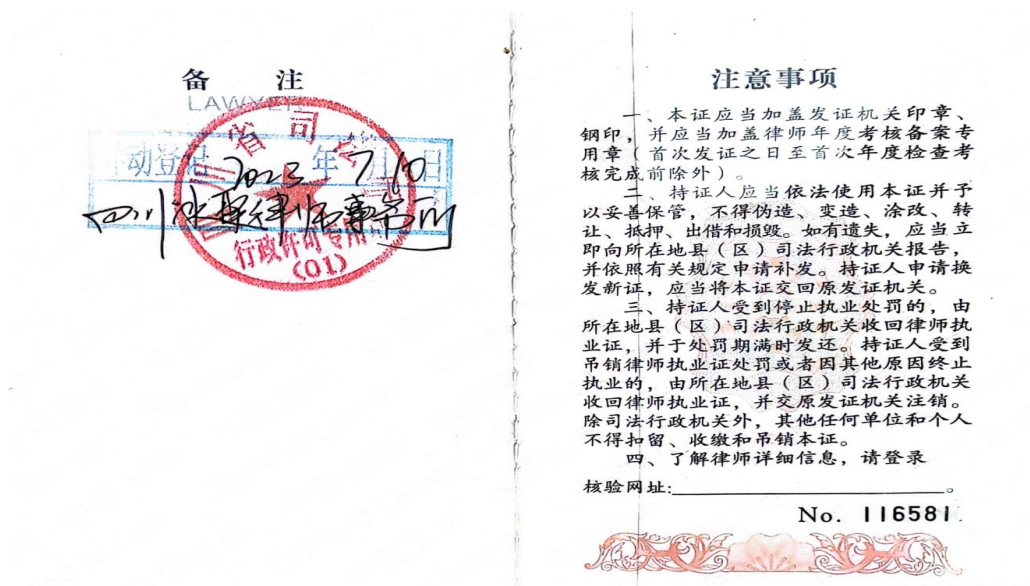 备 注
LAWYER
四川省司法厅
动登记 2023 年 7 10 日
四川 律师事务所
行政许可专用
(01)
注意事项
一、本证应当加盖发证机关印章、
钢印，并应当加盖律师年度考核备案专
用章（首次发证之日至首次年度检查考
核完成前除外）。
二、持证人应当依法使用本证并予
以妥善保管，不得伪造、变造、涂改、转
让、抵押、出借和损毁。如有遗失，应当立
即向所在地县（区）司法行政机关报告，
并依照有关规定申请补发。持证人申请换
发新证，应当将本证交回原发证机关。
三、持证人受到停止执业处罚的，由
所在地县（区）司法行政机关收回律师执
业证，并于处罚期满时发还。持证人受到
吊销律师执业证处罚或者因其他原因终止
执业的，由所在地县（区）司法行政机关
收回律师执业证，并交原发证机关注销。
除司法行政机关外，其他任何单位和个人
不得扣留、收缴和吊销本证。
四、了解律师详细信息，请登录
核验网址:。
No. 116581